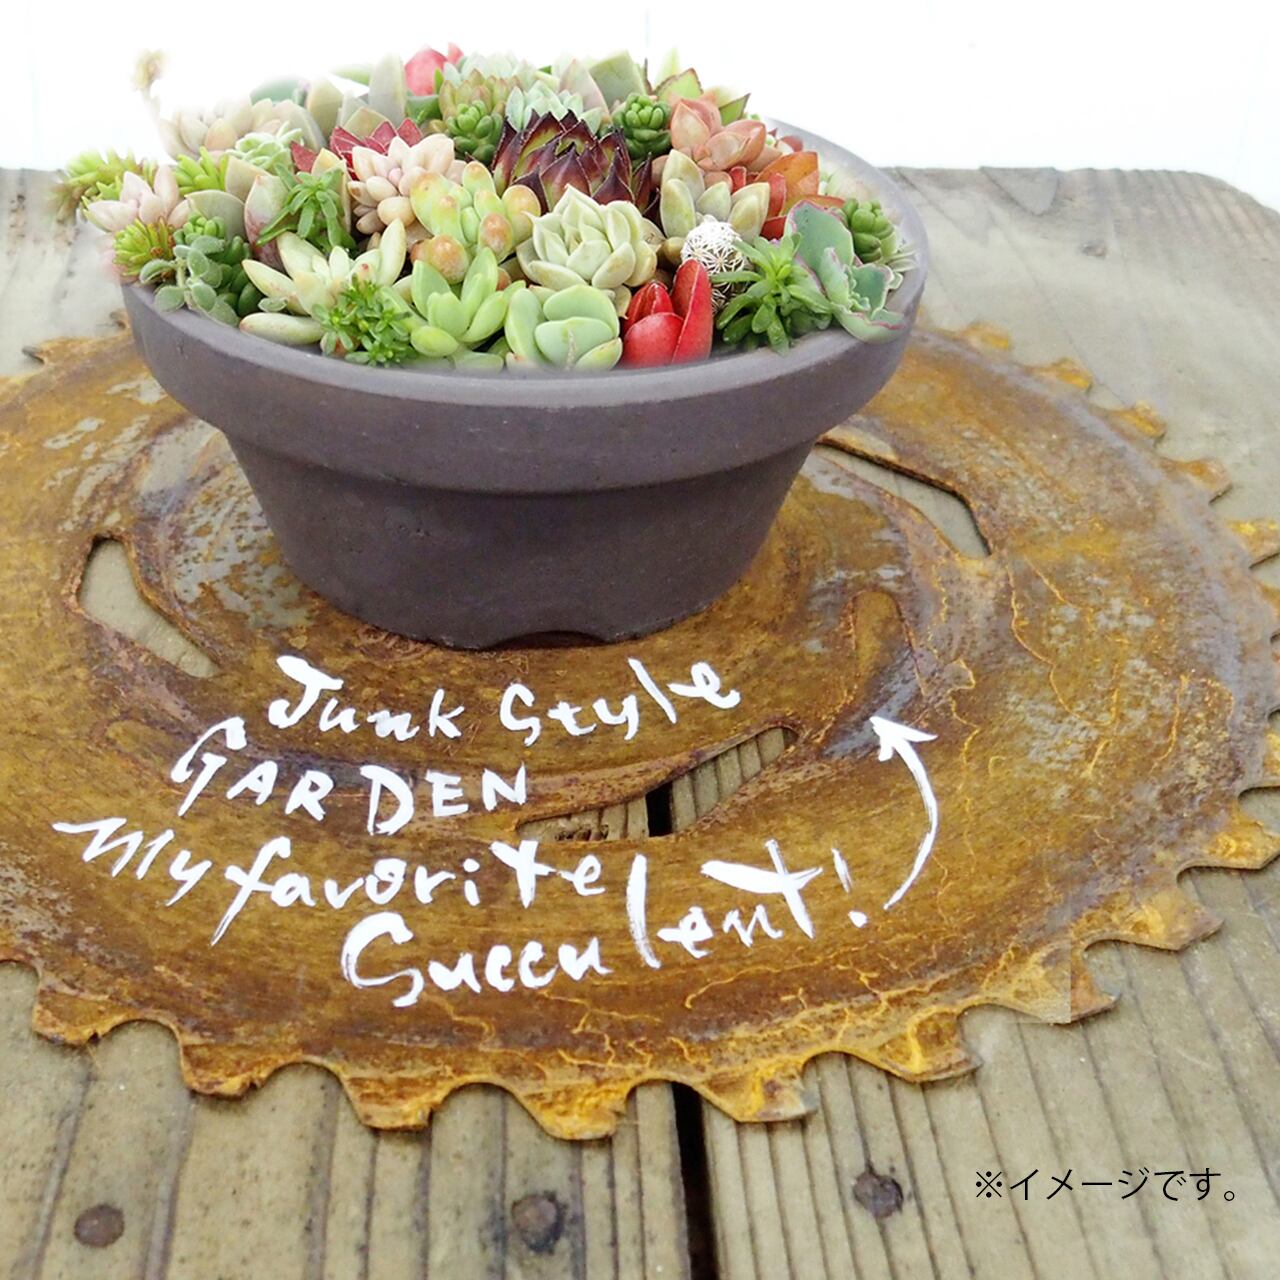 Junk Style
GARDEN
My favorite
Succulent!
※イメージです。